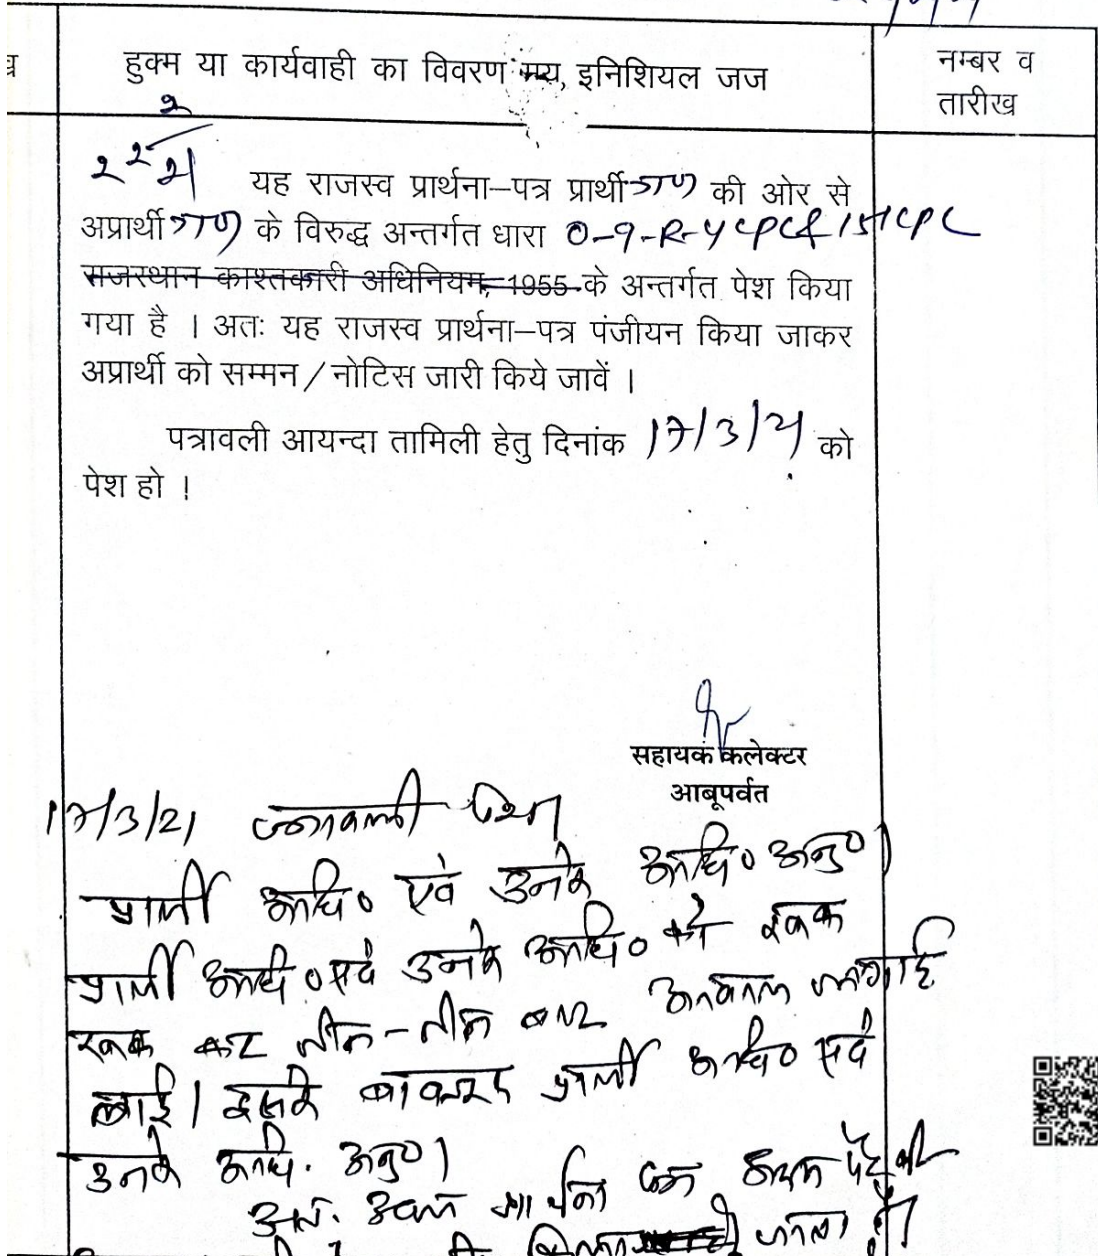 हुक्म या कार्यवाही का विवरण मय, इनिशियल जज
नम्बर व
तारीख
यह राजस्व प्रार्थना–पत्र प्रार्थीगण की ओर से
अप्रार्थीगण के विरुद्ध अन्तर्गत धारा 0-9-R-4 CPC & 151 CPC
राजस्थान काश्तकारी अधिनियम, 1955 के अन्तर्गत पेश किया
गया है । अतः यह राजस्व प्रार्थना–पत्र पंजीयन किया जाकर
अप्रार्थी को सम्मन / नोटिस जारी किये जावें ।
पत्रावली आयन्दा तामिली हेतु दिनांक 17/3/21 को
पेश हो ।
सहायक कलेक्टर
आबूपर्वत
17/3/21 पत्रावली पेश
प्रार्थी अधि० एवं उनके अधि० अनु० ।
प्रार्थी अधि० एवं उनके अधि० को रूक
रूक कर तीन-तीन बार आवाज लगाई
। इसके बावजूद प्रार्थी अधि० एवं
उनके अधि. अनु० ।
अतः